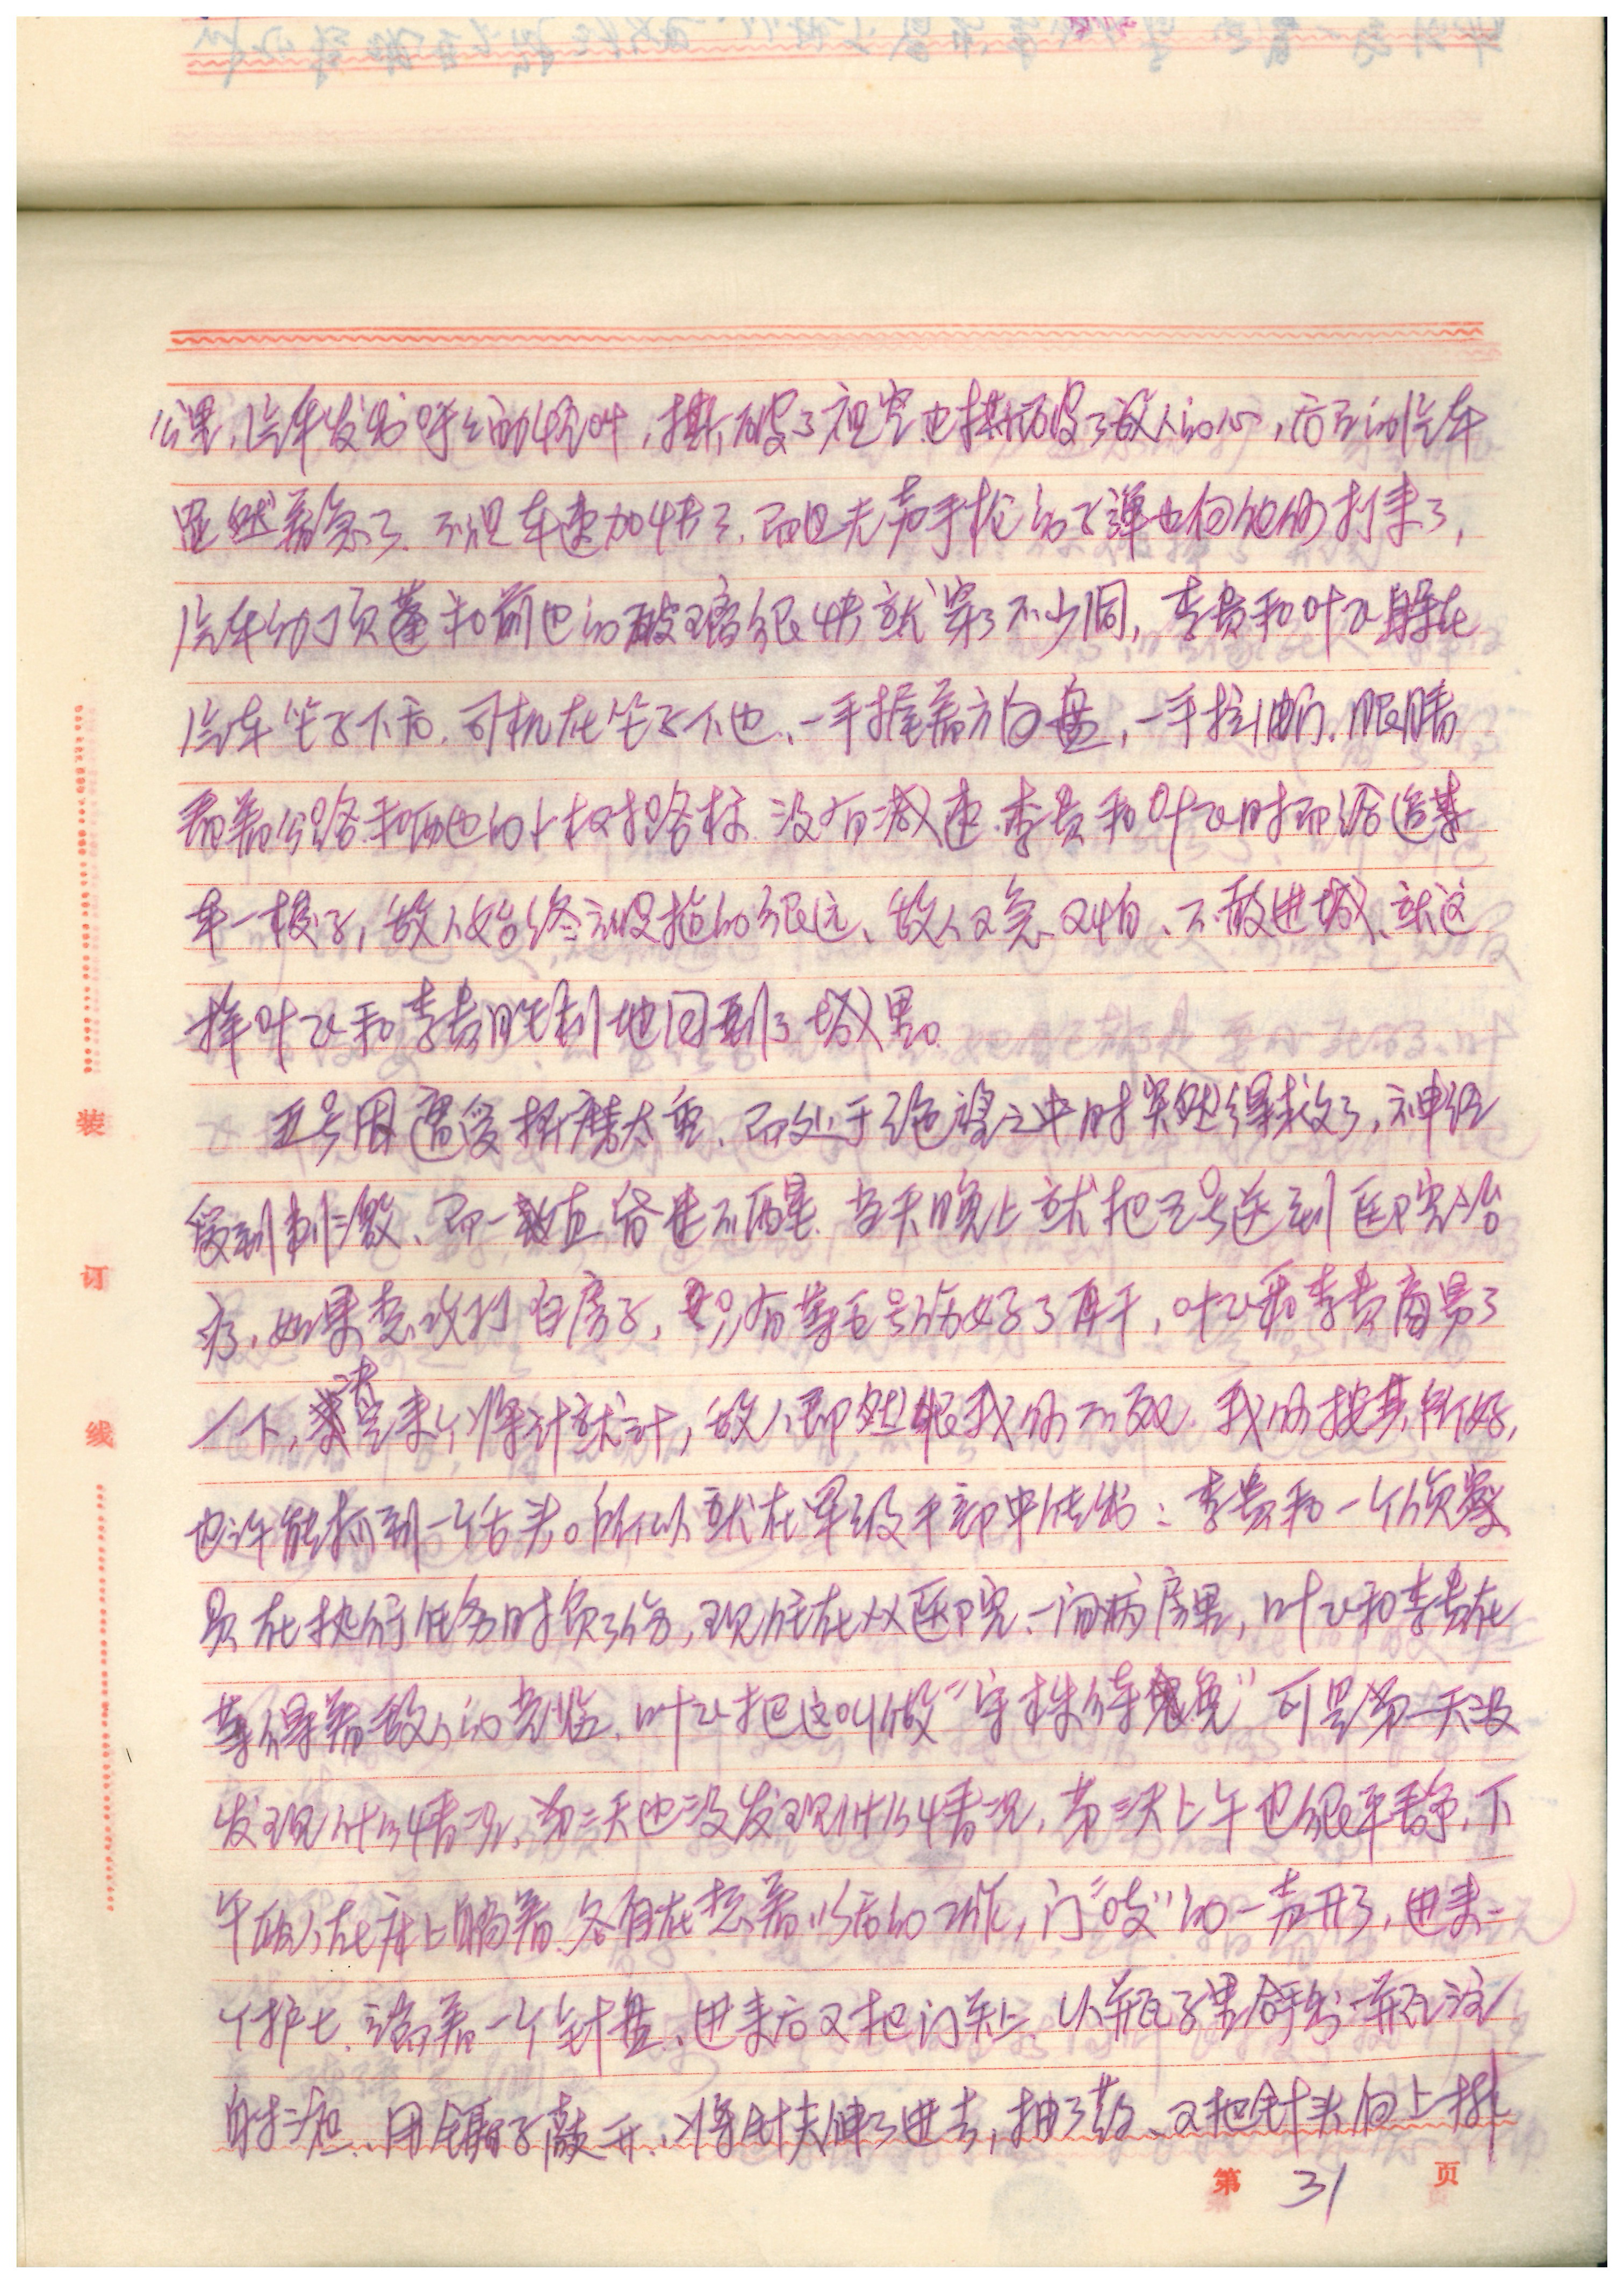 公里,汽车发出呼呼的怪叫,撕破了夜空也撕破了敌人的心,后面的汽车
显然着急了.不但车速加快了,而且无声手枪的子弹也向他们打来了,
汽车的顶蓬和前面的玻璃很快就穿了不少洞,李贵和叶飞躲在
汽车坐子下面.司机在坐子下面、一手握着方向盘,一手拉油门.眼睛
看着公路和两边的小权把路标.没有减速.李贵和叶飞时而给追来
车一梭子,敌人始终被拖的很远、敌人又急又怕、不敢进城、就这
样叶飞和李贵胜利地回到了城里。
五号因遭受折磨太重、而处于绝望之中时突然得救了,神经
受到刺激、而一直昏迷不醒.当天晚上就把五号送到医院治
疗,如果想攻打白房子,只有等五号伤好了再干,叶飞和李贵商易了
一下,决定来个将计就计,敌人即然恨我们不死.我们投其所好,
也许能抓到一个舌头。所以就在军级干部中传出:李贵和一个侦察
员在执行任务时负了伤,现住在××医院一间病房里,叶飞和李贵在
等得着敌人的光临.叶飞把这叫做"守株待兔"可是第一天没
发现什么情况、第二天也没发现什么情况,第三天上午也很平静,下
午两人在床上躺着.各自在想着以后的工作,门"吱"的一声开了,进来一
个护士.端着一个针盘、进来后又把门关上.从瓶子里拿出一瓶注
射液、用镊子敲开、将针头伸了进去,抽了药、又把针头向上排
第 31 页
装
订
线